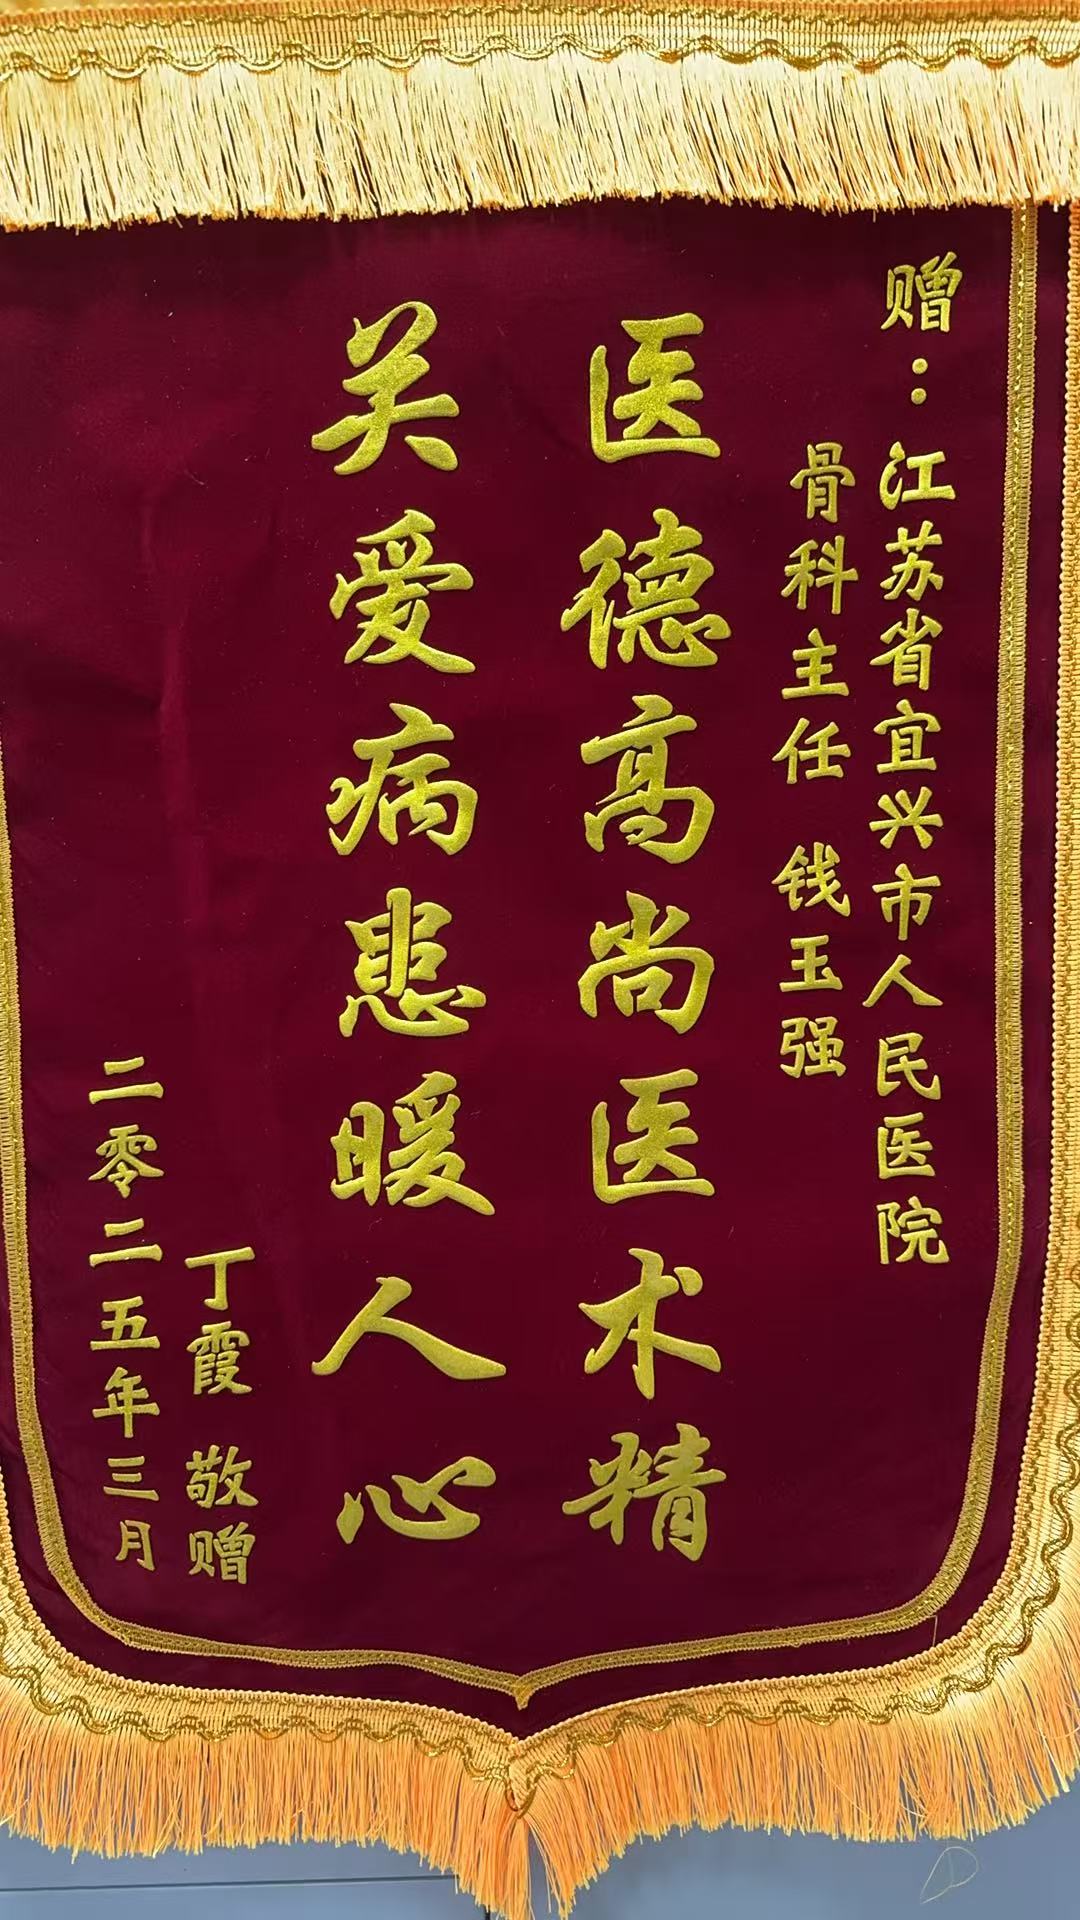 赠：江苏省宜兴市人民医院
骨科主任 钱玉强
医德高尚医术精
关爱病患暖人心
丁霞 敬赠
二零二五年三月